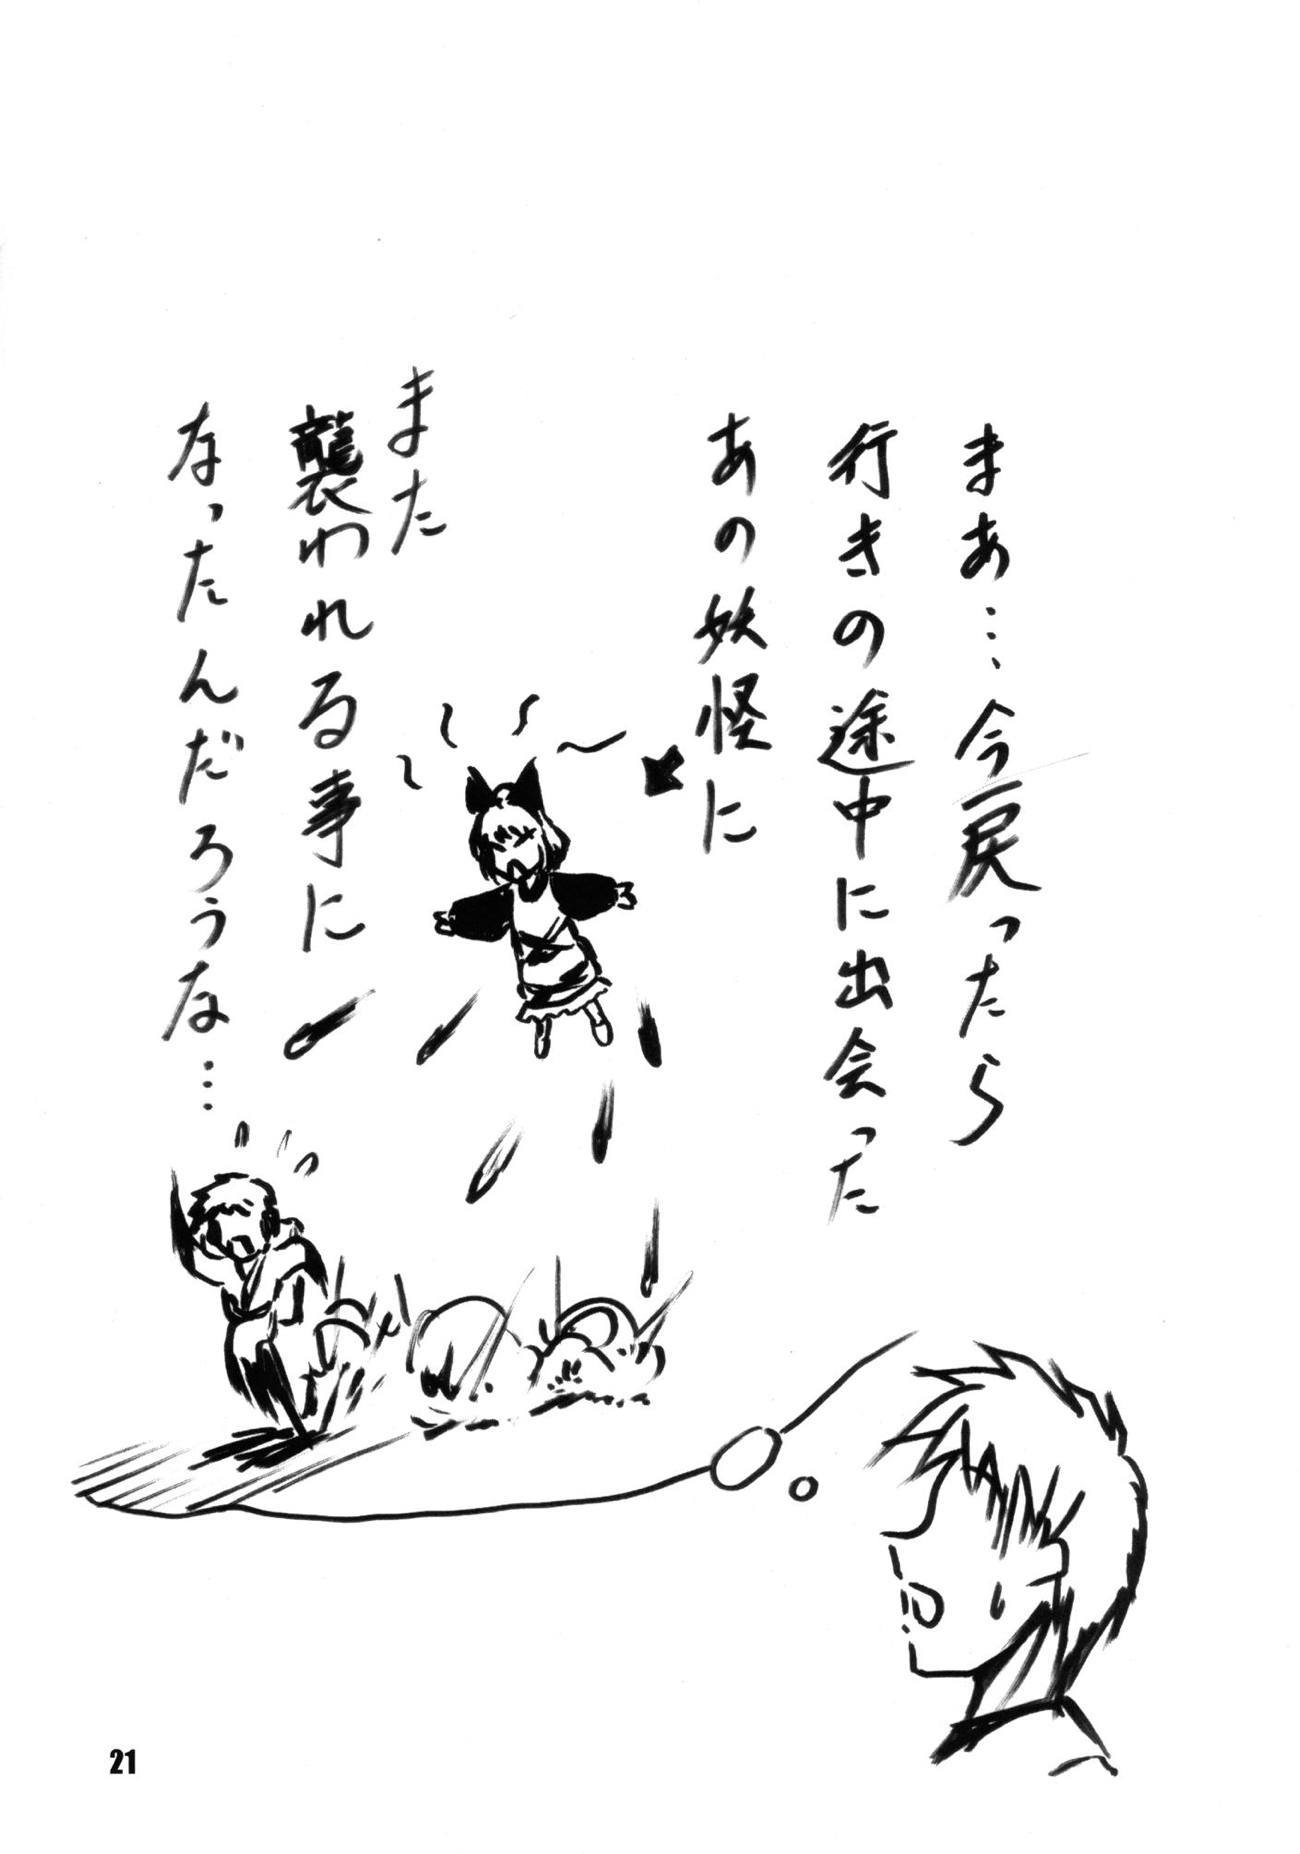 まあ…今戻ったら
行きの途中に出会った
あの妖怪に
また
襲われる事に
なったんだろうな…
21